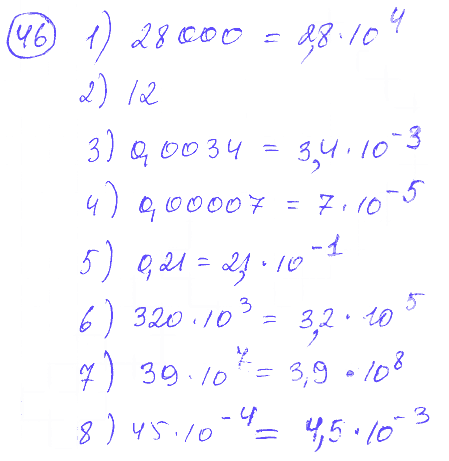 46 1) 28000 = 2,8·10⁴
2) 12
3) 0,0034 = 3,4·10⁻³
4) 0,00007 = 7·10⁻⁵
5) 0,21 = 2,1·10⁻¹
6) 320·10³ = 3,2·10⁵
7) 39·10⁷ = 3,9·10⁸
8) 45·10⁻⁴ = 4,5·10⁻³